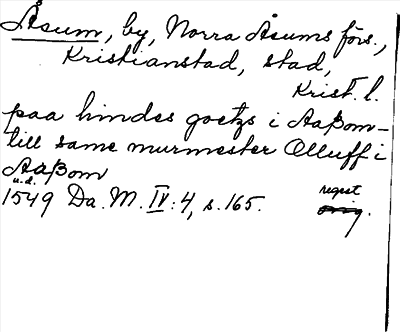 Åsum, by, Norra Åsums förs.,
Kristianstad, stad,
Krist. l.
paa hindes goetzs i Aaßom -
till same murmester Olluff i
Aaßom
u.d.
1549 Da. M. IV:4, s. 165.
regest
orig.